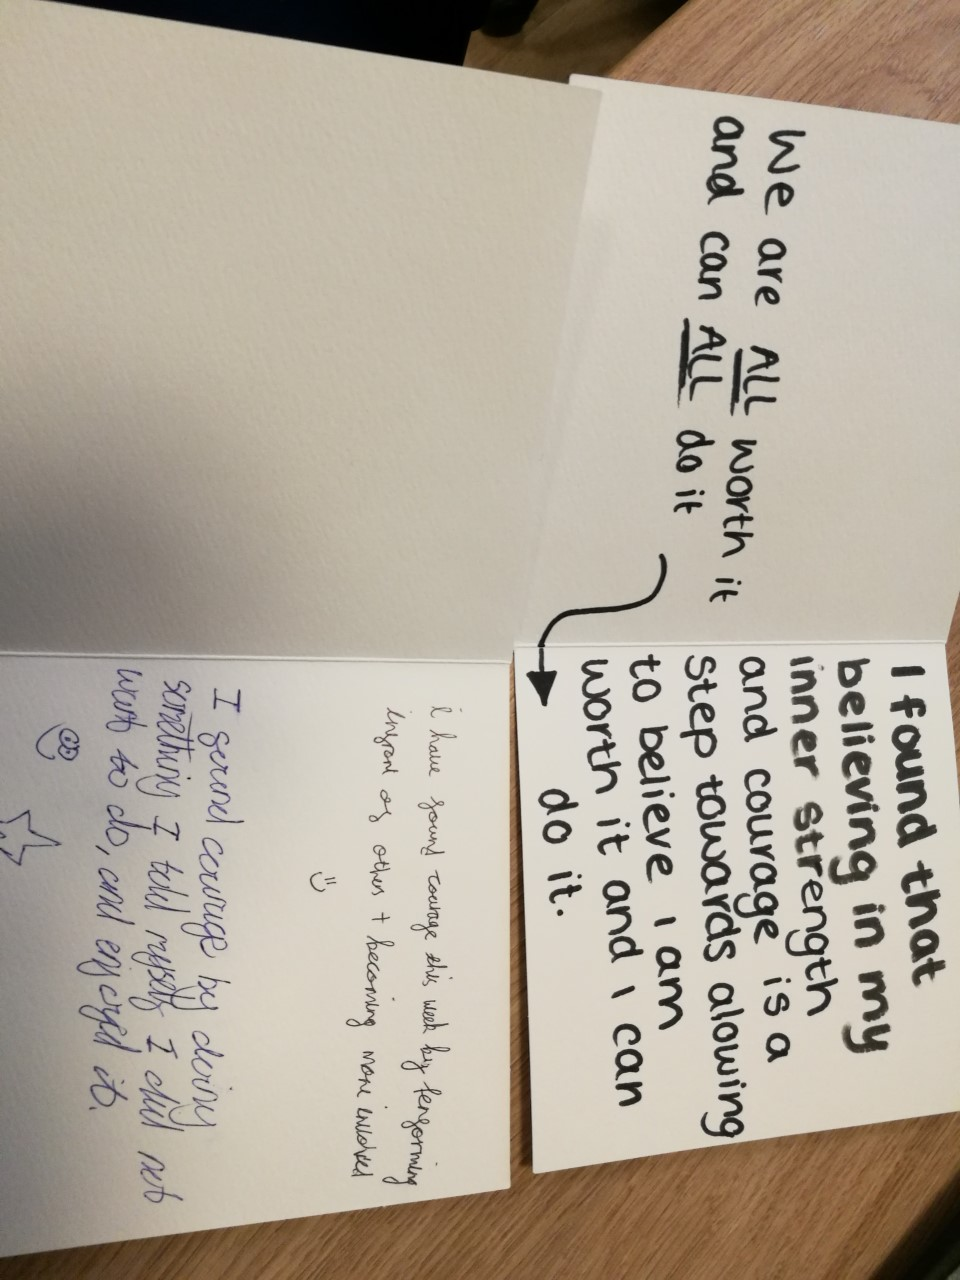 We are ALL worth it
and can ALL do it
I found that
believing in my
inner strength
and courage is a
step towards alowing
to believe I am
worth it and I can
do it.
i have found courage this week by performing
infront of others + becoming more involved
I found courage by doing
something I told myself I did not
want to do, and enjoyed it.